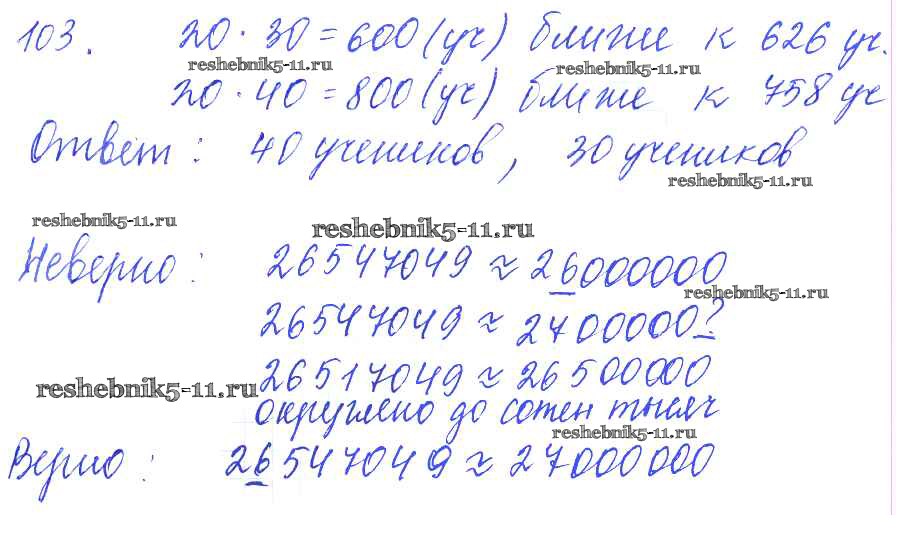 103. 20 · 30 = 600 (уч) ближе к 626 уч.
reshebnik5-11.ru reshebnik5-11.ru
20 · 40 = 800 (уч) ближе к 758 уч
Ответ: 40 учеников, 30 учеников
reshebnik5-11.ru
reshebnik5-11.ru reshebnik5-11.ru
Неверно: 26547049 ≈ 26000000
reshebnik5-11.ru
26547049 ≈ 2700000?
26517049 ≈ 26500000
reshebnik5-11.ru
округлено до сотен тысяч
reshebnik5-11.ru
Верно: 26547049 ≈ 27000000